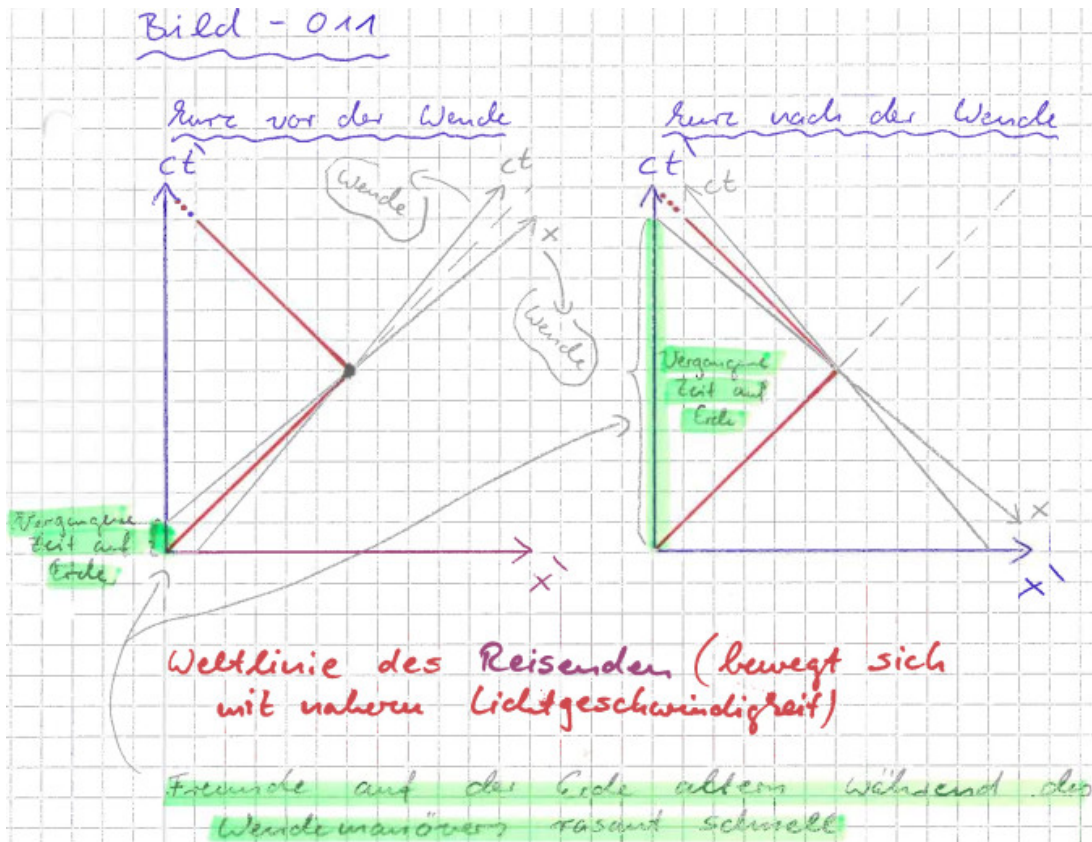 Bild - 011
kurz vor der Wende
kurz nach der Wende
ct`
Wende
ct
x
Wende
Vergangene
Zeit auf
Erde
x`
ct`
ct
Vergangene
Zeit auf
Erde
x
x`
Weltlinie des Reisenden (bewegt sich
mit nahezu Lichtgeschwindigkeit)
Freunde auf der Erde altern während des
Wendemanövers rasant schnell